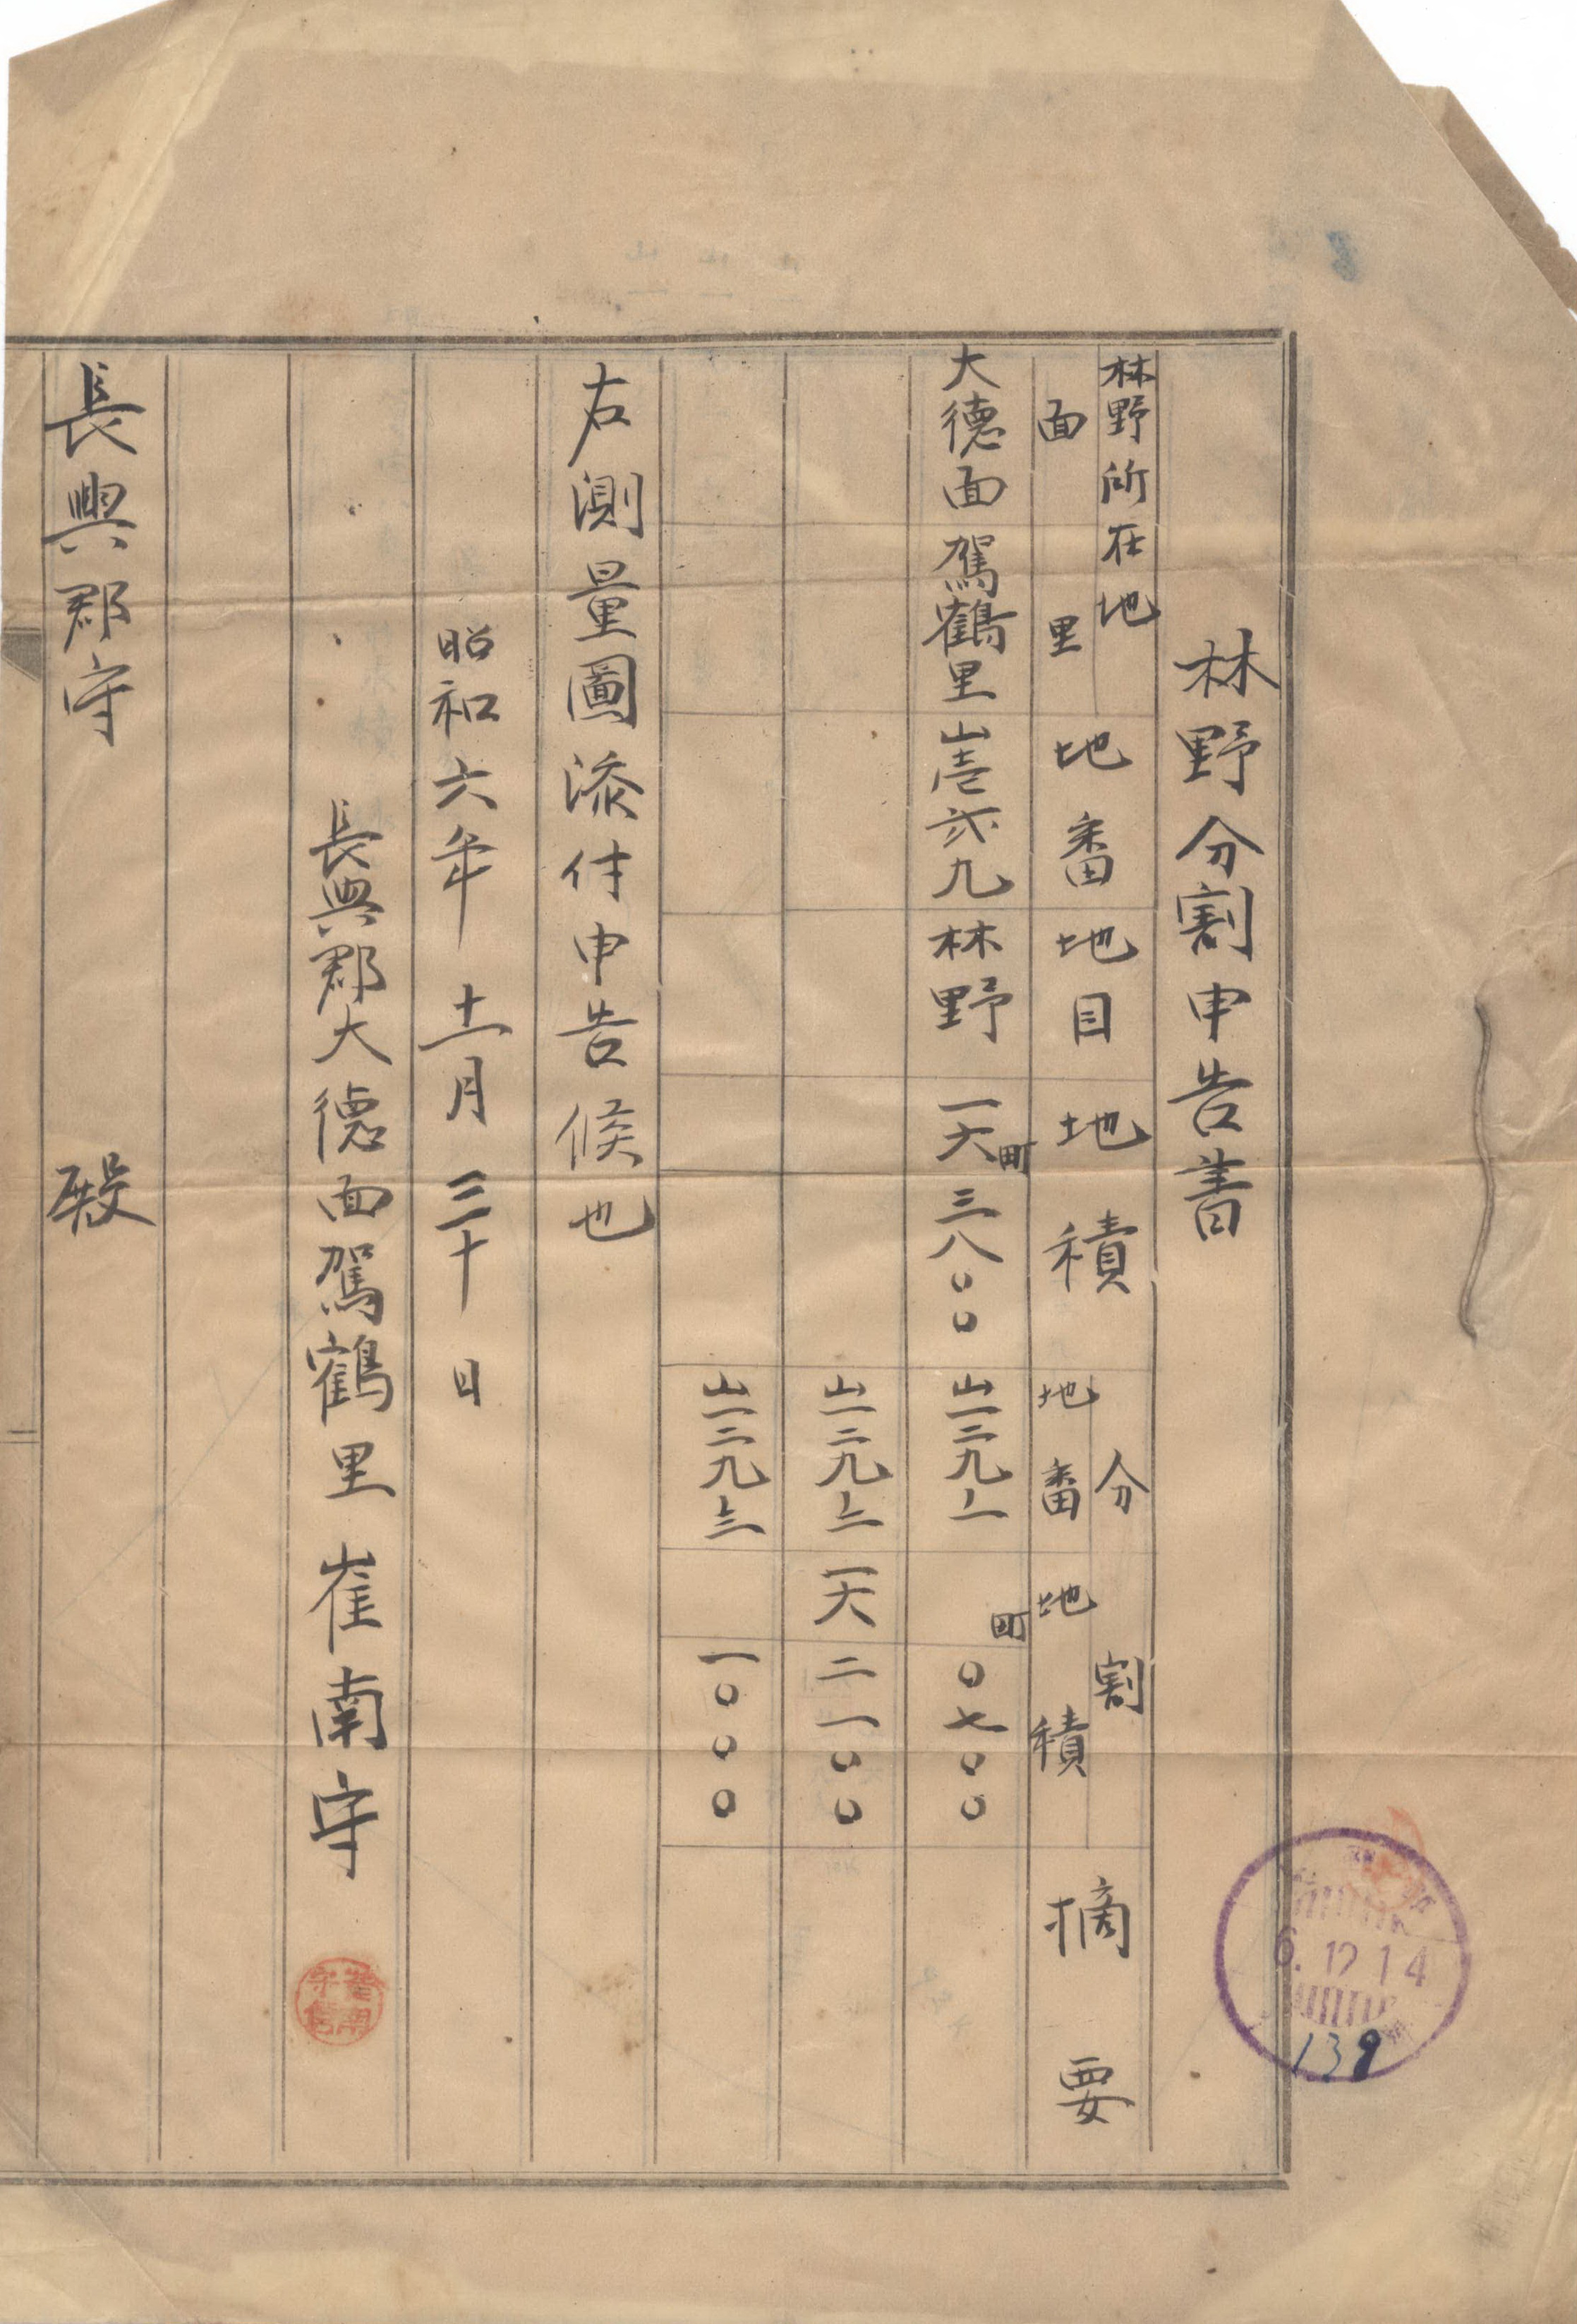 林野分割申告書
林野所在地 分割
面 里 地番 地目 地積 地番 地積 摘要
大德面 駕鶴里 山壱弍九 林野 一六町三八〇〇 山一二九ノ一 町〇七〇〇
山一二九ノ二 一六二一〇〇
山一二九ノ三 一〇〇〇
右測量圖添付申告候也
昭和六年 十一月 三十日
長興郡大德面駕鶴里 崔南守
長興郡守 殿
6.12 14
139